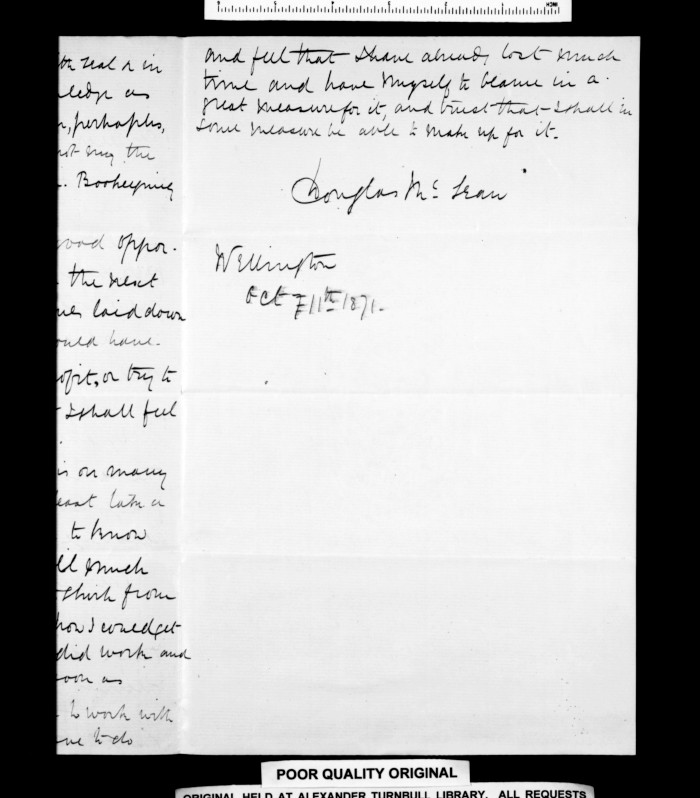 the real or in
ledge as
perhaphs,
not my the
Bookeeping
good oppor-
the next
laid down
ould have
ofit, or try to
I shall feel
is on many
east late a
to know
ll much
think from
how I could get
did work and
soon as
to work with
me to do
and feel that I have already lost much
time and have myself to blame in a
great measure for it, and trust that I shall in
some measure be able to make up for it.
Douglas McLean
Wellington
Oct 11th 1871.
POOR QUALITY ORIGINAL
ORIGINAL HELD AT ALEXANDER TURNBULL LIBRARY. ALL REQUESTS